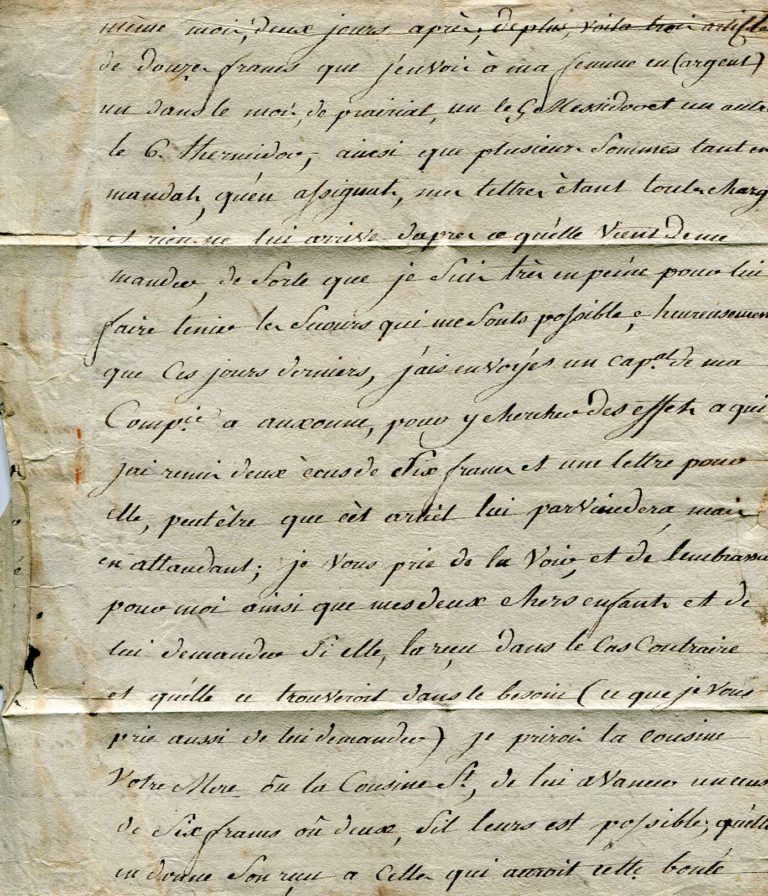 même moi, deux jours après; deplus, voila troi articles
de douze francs que j'envoir à ma femme en (argent)
un dans le moi, de prairial, un le 9 Messidor et un autre
le 6. thermidor, ainsi que plusieur Sommes tant en
mandat, qu'en assignat, mes lettres étant toute charg
et rien ne lui arrive d'apres ce qu'elle Vient de me
mander, de Sorte que je Suis très en peine pour lui
faire tenir les Secours qui me Sonts possible, hureusement
que Ces jours derniers, j'ais envoyés un cap.al de ma
Comp.ie a auxonne, pour y chercher des effets a qui
j'ai remi deux écus de Six francs et une lettre pour
elle, peut être que cèt articl lui parviendera, mais
en attandant; je Vous prie de la Voir, et de lembrasser
pour moi ainsi que mes deux chers enfants et de
lui demander Si elle, la reçu dans le Cas Contraire
et qu'elle ce trouveroit dans le besoin (ce que je Vous
prie aussi de lui demander) je priroi la cousine
Votre Mere òu la Cousine St, de lui avancer un ecus
de Six francs òu deux, S'il leurs est possible, qu'elle
en donne Son reçu a Celle qui auroit cette bonté